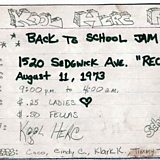 KOOL HERC
BACK TO SCHOOL JAM
1520 SEDGWICK AVE. "REC
AUGUST 11, 1973
9:00 PM TO 4:00 AM.
$.25 LADIES
$.50 FELLAS
KOOL HERC
COCO, CINDY C., KLARK K., TIMMY